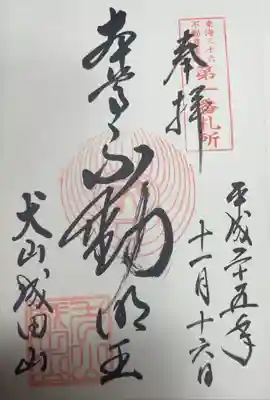 東海三十六
不動尊
第一番札所
奉拝
平成二十五年
十一月十六日
本尊不動明王
犬山成田山